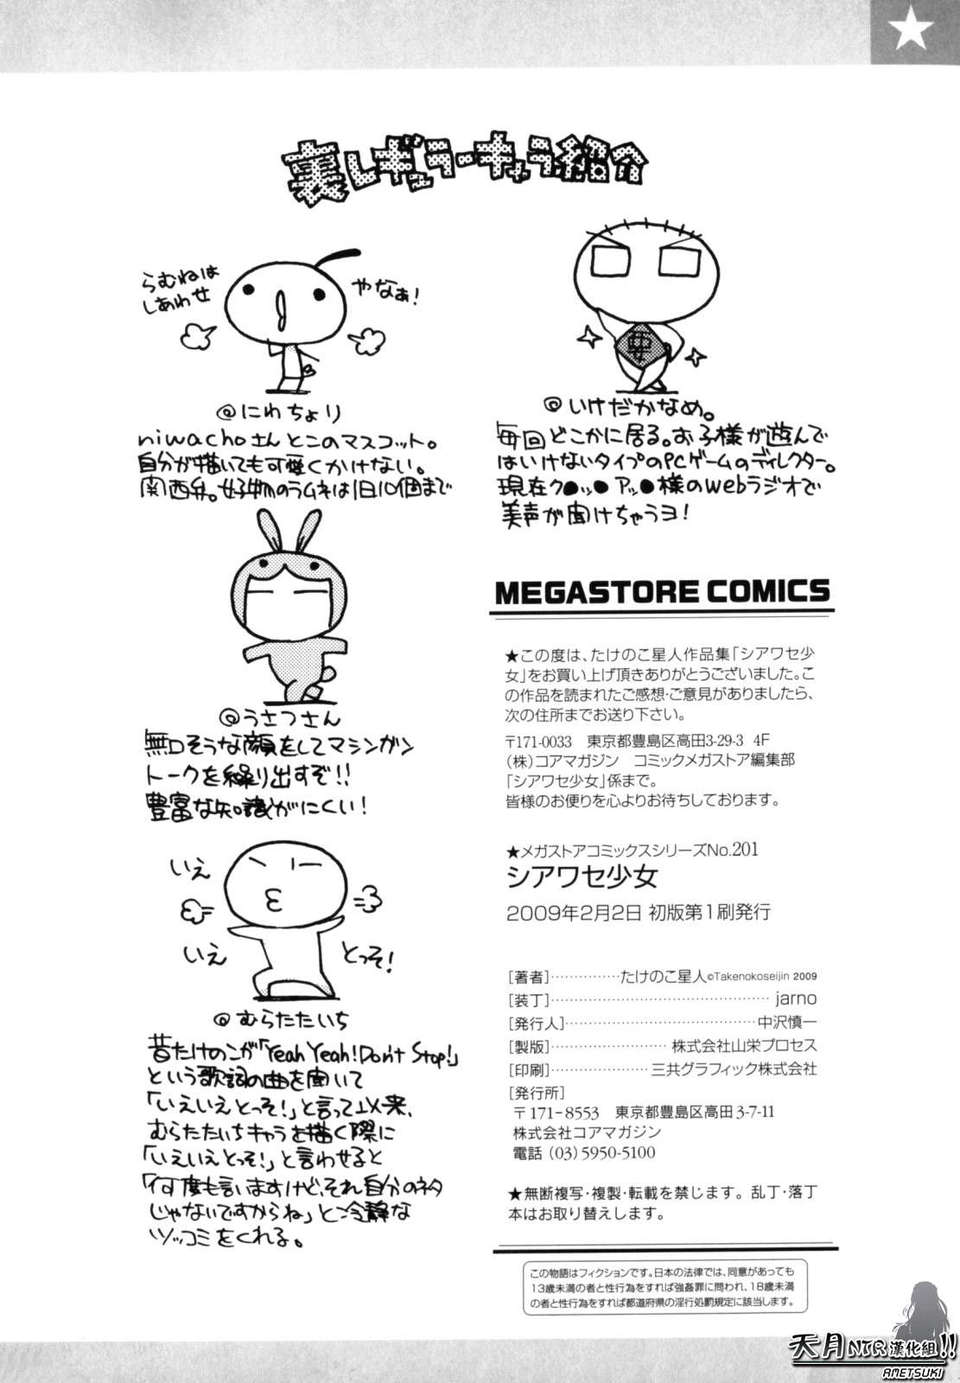 裏レギュラーキャラ紹介
らむねは
しあわせ
やなぁ!
@にわちょり
niwachoさんとこのマスコット。
自分が描いても可愛くかけない。
関西弁。好物のラムネは1日10個まで
@いけだかなめ。
毎回どこかに居る。お子様が遊んで
はいけないタイプのPCゲームのディレクター。
現在ク●ッ● アッ●様のWebラジオで
美声が聞けちゃうヨ!
@うさつさん
無口そうな顔をしてマシンガン
トークを繰り出すぞ!!
豊富な知識がにくい!
いえ
いえ
とっそ!
@むらたたいち
昔たけのこが「Yeah Yeah! Don't Stop!」
という歌詞の曲を聞いて
「いえいえとっそ!」と言って以来、
むらたたいちキャラを描く際に
「いえいえとっそ!」と言わせると
「何度も言いますけど、それ自分のネタ
じゃないですからね」と冷静な
ツッコミをくれる。
MEGASTORE COMICS
★この度は、たけのこ星人作品集「シアワセ少
女」をお買い上げ頂きありがとうございました。こ
の作品を読まれたご感想・ご意見がありましたら、
次の住所までお送り下さい。
〒171-0033 東京都豊島区高田3-29-3 4F
(株)コアマガジン コミックメガストア編集部
「シアワセ少女」係まで。
皆様のお便りを心よりお待ちしております。
★メガストアコミックスシリーズNo.201
シアワセ少女
2009年2月2日 初版第1刷発行
[著者]‥‥‥‥‥‥‥たけのこ星人©Takenokoseijin 2009
[装丁]‥‥‥‥‥‥‥‥‥‥‥‥‥‥‥‥‥‥‥‥‥‥jarno
[発行人]‥‥‥‥‥‥‥‥‥‥‥‥‥‥‥‥‥‥‥中沢慎一
[製版]‥‥‥‥‥‥‥‥‥‥‥‥株式会社山栄プロセス
[印刷]‥‥‥‥‥‥‥‥‥‥三共グラフィック株式会社
[発行所]
〒171-8553 東京都豊島区高田3-7-11
株式会社コアマガジン
電話 (03)5950-5100
★無断複写・複製・転載を禁じます。乱丁・落丁
本はお取り替えします。
この物語はフィクションです。日本の法律では、同意があっても
13歳未満の者と性行為をすれば強姦罪に問われ、18歳未満
の者と性行為をすれば都道府県の淫行処罰規定に該当します。
天月NTR漢化組!!
AMETSUKI